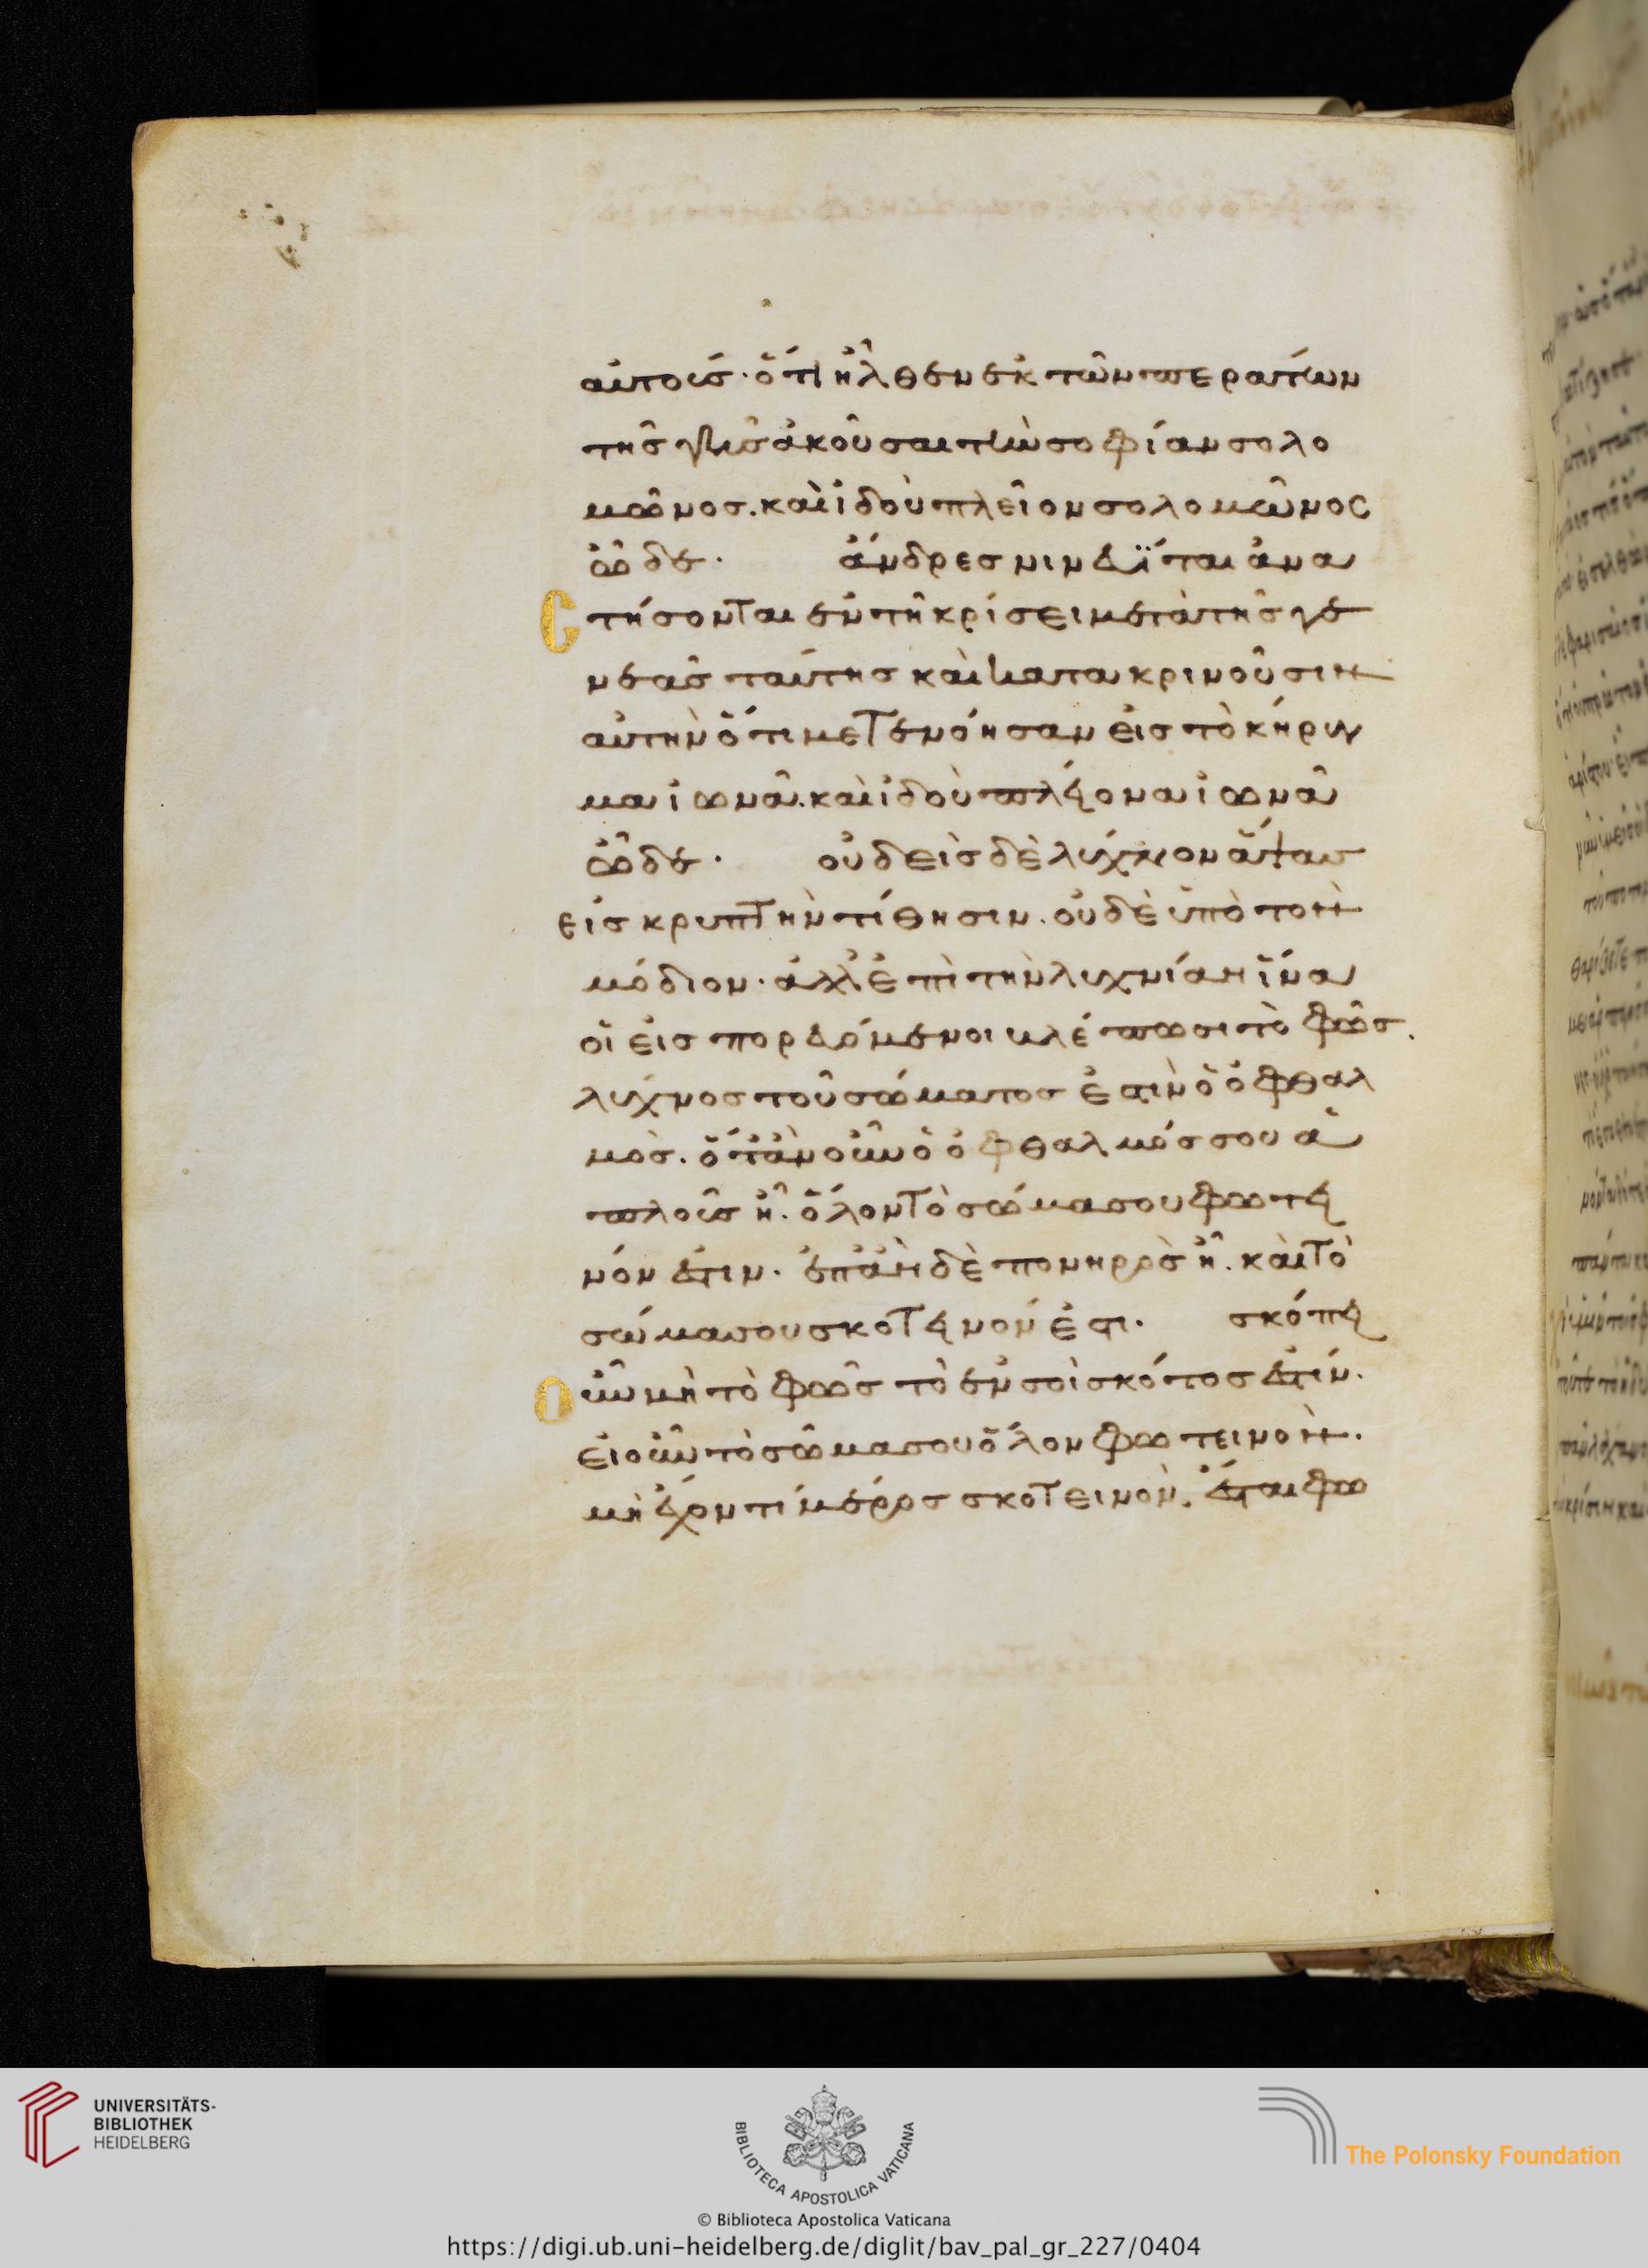 αὐτούς· ὅτι ἦλθεν ἐκ τῶν περάτων
τῆς γῆς ἀκοῦσαι τὴν σοφίαν σολο
μῶνος. καὶ ἰδοὺ πλεῖον σολομῶνος
ὧδε· ἄνδρες νινευῖται ἀνα
Στήσονται ἐν τῆ κρίσει μετὰ τῆς γε
νεᾶς ταύτης καὶ κατακρινοῦσιν
αὐτὴν ὅτι μετενόησαν εἰς τὸ κήρυγ
μα ἰωνᾶ. καὶ ἰδοὺ πλείονα ἰωνᾶ
ὧδε· οὐδεὶς δὲ λύχνον ἅψας
εἰς κρυπτὴν τίθησιν. οὐδὲ ὑπὸ τὸν
μόδιον· ἀλλ' ἐπὶ τὴν λυχνίαν ἵνα
οἱ εἰσπορευόμενοι βλέπωσι τὸ φῶς.
λύχνος τοῦ σώματος ἐστὶν ὁ ὀφθαλ
μὸς. ὅταν οὖν ὁ ὀφθαλμός σου ἁ
πλοῦς ἦ. ὅλον τὸ σῶμα σου φωτει
νόν ἐστιν. ἐπὰν δὲ πονηρὸς ἦ. καὶ τὸ
σώμα σου σκοτεινόν ἐστι. σκόπει
Οὖν μὴ τὸ φῶς τὸ ἐν σοὶ σκότος ἐστίν.
εἰ οὖν τὸ σῶμα σου ὅλον φωτεινὸν.
μὴ ἔχον τί μέρος σκοτεινὸν. ἔσται φω
UNIVERSITÄTS-
BIBLIOTHEK
HEIDELBERG
BIBLIOTECA APOSTOLICA VATICANA
The Polonsky Foundation
© Biblioteca Apostolica Vaticana
https://digi.ub.uni-heidelberg.de/diglit/bav_pal_gr_227/0404